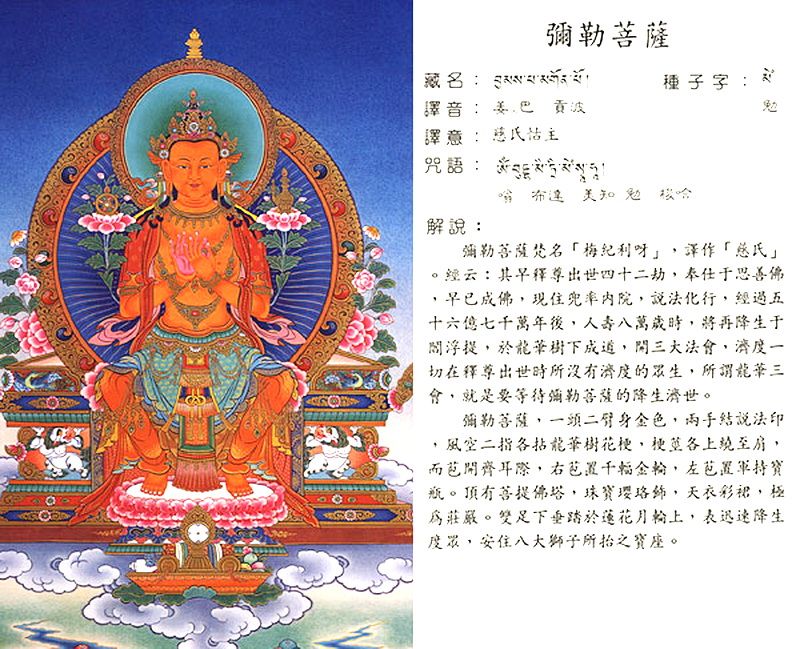 彌勒菩薩
藏名： བྱམས་པ་མགོན་པོ། 種子字：
譯音：姜．巴 貢波 勉
譯意：慈氏怙主
咒語：
嗡 布達 美知 勉 梭哈
解說：
彌勒菩薩梵名「梅紀利呀」，譯作「慈氏」
。經云：其早釋尊出世四十二劫，奉仕于思善佛
，早已成佛，現住兜率内院，說法化行，經過五
十六億七千萬年後，人壽八萬歲時，將再降生于
閻浮提，於龍華樹下成道，開三大法會，濟度一
切在釋尊出世時所沒有濟度的眾生，所謂龍華三
會，就是要等待彌勒菩薩的降生濟世。
彌勒菩薩，一頭二臂身金色，兩手結說法印
，風空二指各拈龍華樹花梗，梗莖各上繞至肩，
而芭開齊耳際，右芭置千輻金輪，左芭置軍持寶
瓶。頂有菩提佛塔，珠寶瓔珞飾，天衣彩裙，極
為莊嚴。雙足下垂踏於蓮花月輪上，表迅速降生
度眾，安住八大獅子所抬之寶座。